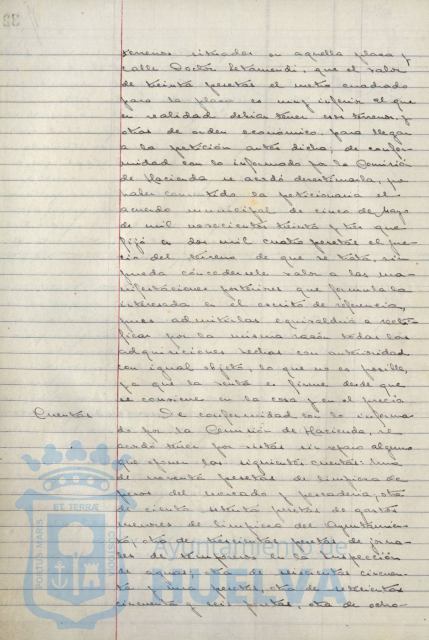 terrenos situados en aquella plaza y
calle Doctor Letamendi, que el valor
de treinta pesetas el metro cuadrado
para la plaza es muy inferior al que
en realidad debian tener esos terrenos, y
otras de orden económico para llegar
a la petición antes dicha; de confor-
midad con lo informado por la Comisión
de Hacienda se acordó desestimarla, por
haber consentido la peticionaria el
acuerdo municipal de cinco de Mayo
de mil novecientos treinta y tres que
fijó en dos mil cuatro pesetas el pre-
cio del terreno de que se trata, sin
pueda concedersele valor a las ma-
nifestaciones posteriores que formula la
interesada en el escrito de referencia,
pues admitirlas equivaldria a rectifi-
ficar por la misma razón todas las
adquisiciones hechas con anterioridad
con igual objeto, lo que no es posible,
ya que la venta es firme desde que
se conviene en la cosa y en el precio
Cuentas De conformidad con lo informa-
do por la Comisión de Hacienda, se
acordó por sin reparo alguno
que los siguientes cuentas: Una
de noventa pesetas de limpieza de
pesos del mercado y pescaderia; otra
de ciento setenta pesetas de gastos
menores de limpieza del Ayuntamien-
to; otra de trescientas pesetas de jorna-
les de temporeros en la inspección
de aguas; otra de seiscientas cincuen-
ta y una pesetas, otra de setecientas
cincuenta y seis pesetas, otra de ocho-
PORTUS MARIS
ET TERRAE
CUSTODIA
Ayuntamiento de
HUELVA